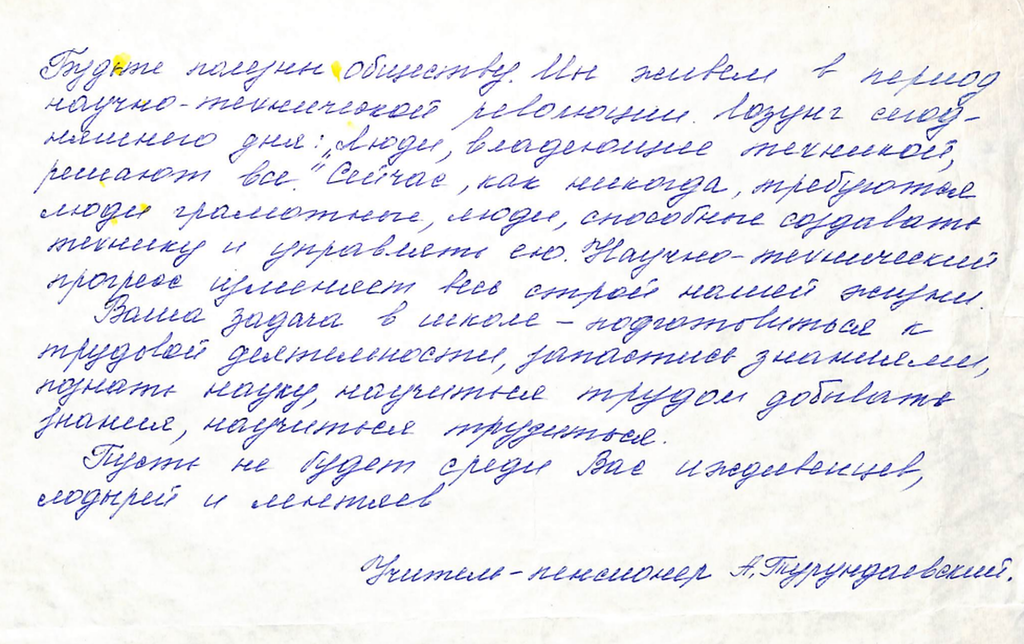 Будьте полезны обществу. Мы живем в период
научно-технической революции. Лозунг сегод-
няшнего дня: „Люди, владеющие техникой,
решают все." Сейчас, как никогда, требуются
люди грамотные, люди, способные создавать
технику и управлять ею. Научно-технический
прогресс изменяет весь строй нашей жизни.
Ваша задача в школе - подготовиться к
трудовой деятельности, запастись знаниями,
познать науку, научиться трудом добывать
знания, научиться трудиться.
Пусть не будет среди Вас иждивенцев,
лодырей и лентяев
Учитель-пенсионер А.Турундаевский.